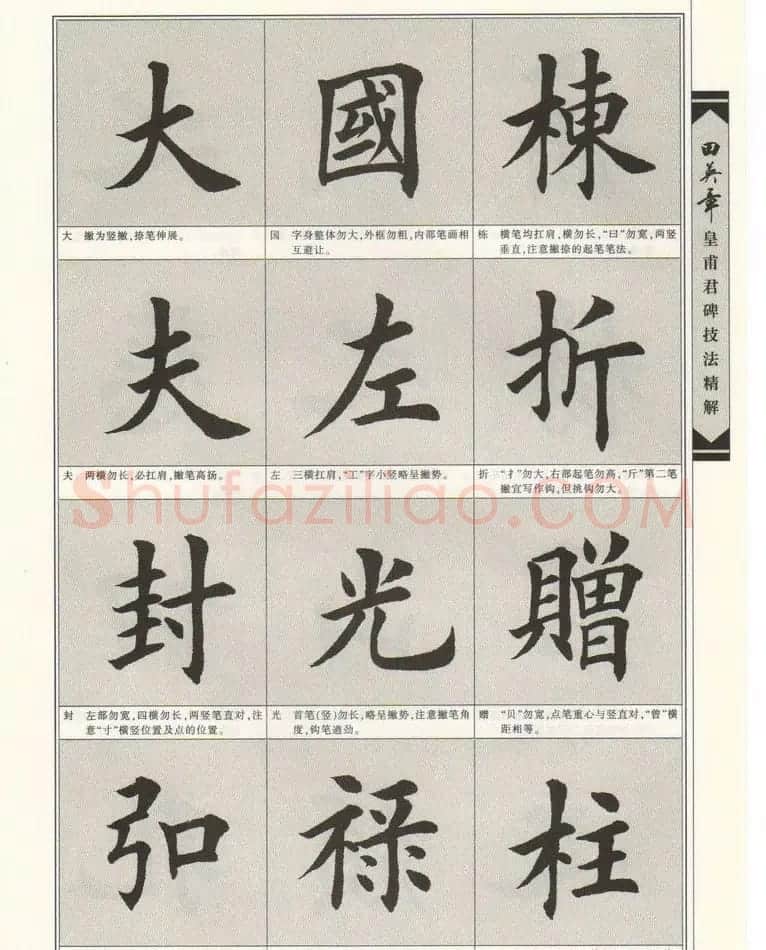 大
國
棟
大 撇为竖撇,捺笔伸展。
国 字身整体勿大,外框勿粗,内部笔画相
互避让。
栋 横笔均扛肩,横勿长,“曰”勿宽,两竖
垂直,注意撇捺的起笔笔法。
夫
左
折
夫 两横勿长,必扛肩,撇笔高扬。
左 三横扛肩,“工”字小竖略呈撇势。
折 “扌”勿大,右部起笔勿高,“斤”第二笔
撇宜写作钩,但挑钩勿大。
封
光
贈
封 左部勿宽,四横勿长,两竖笔直对,注
意“寸”横竖位置及点的位置。
光 首笔(竖)勿长,略呈撇势,注意撇笔角
度,钩笔遒劲。
赠 “贝”勿宽,点笔重心与竖直对,“曾”横
距相等。
弘
禄
柱
田英章
皇甫君碑技法精解
ShufaziliaO.COM